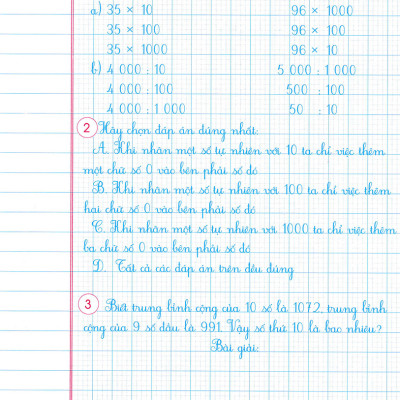 a) 35 × 10 96 × 1000
35 × 100 96 × 100
35 × 1000 96 × 10
b) 4 000 : 10 5 000 : 1 000
4 000 : 100 500 : 100
4 000 : 1 000 50 : 10
2 Hãy chọn đáp án đúng nhất:
A. Khi nhân một số tự nhiên với 10 ta chỉ việc thêm
một chữ số 0 vào bên phải số đó
B. Khi nhân một số tự nhiên với 100 ta chỉ việc thêm
hai chữ số 0 vào bên phải số đó
C. Khi nhân một số tự nhiên với 1000 ta chỉ việc thêm
ba chữ số 0 vào bên phải số đó
D. Tất cả các đáp án trên đều đúng
3 Biết trung bình cộng của 10 số là 1072, trung bình
cộng của 9 số đầu là 991. Vậy số thứ 10 là bao nhiêu?
Bài giải: